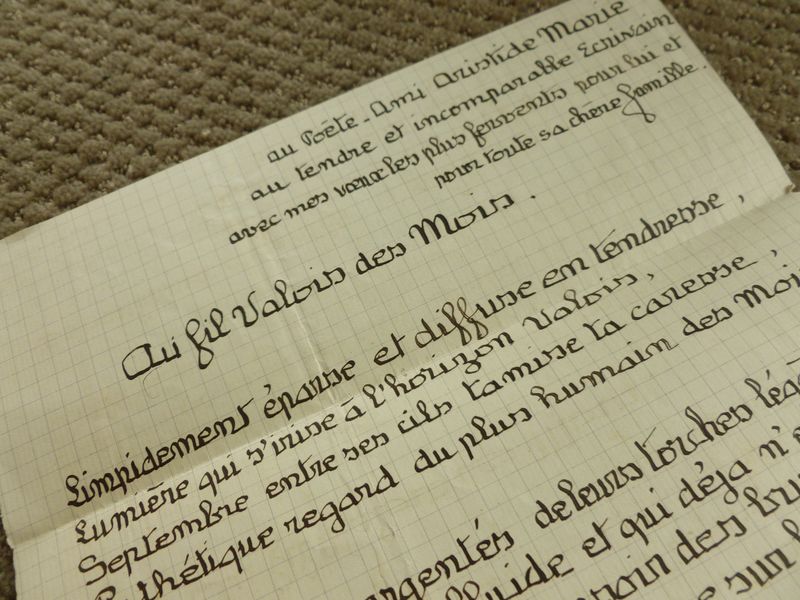 au Poète-Ami Aristide Marie
au tendre et incomparable Ecrivain
avec mes vœux les plus fervents pour lui et
pour toute sa chère famille.
Au fil Valois des Mois.
Limpidement éparse et diffuse en tendresse,
Lumière qui s'irise à l'horizon Valois,
Septembre entre ses cils tamise ta caresse,
Esthétique regard du plus humain des Moi
argentés de leurs torches légè
fluide et qui déja n'e
des bru
sur l